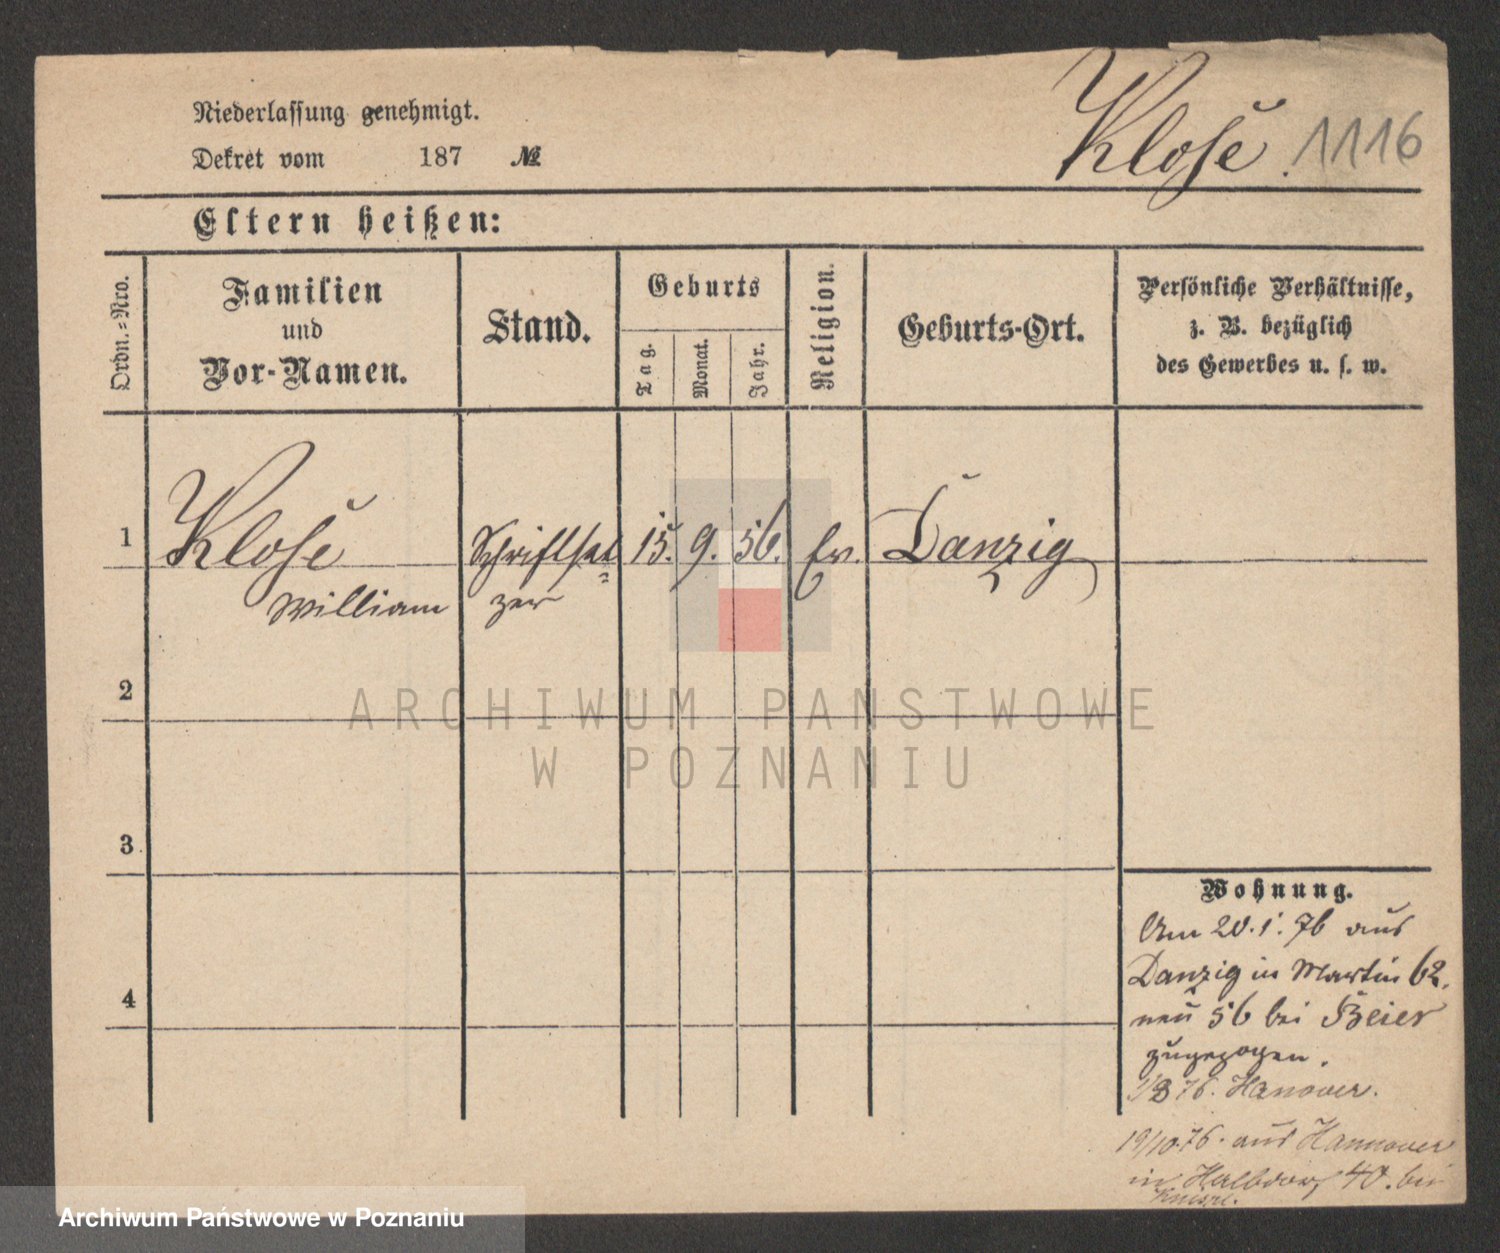 Klose. 1116
Niederlassung genehmigt.
Dekret vom 187 №
Eltern heißen:
Ordn.=Nro.
Familien
und
Vor-Namen.
Stand.
Geburts
Tag.
Monat.
Jahr.
Religion.
Geburts-Ort.
Persönliche Verhältnisse,
z. B. bezüglich
des Gewerbes u. s. w.
1 Klose Schriftset= 15. 9. 56. Ev. Danzig
William zer
2
ARCHIWUM PANSTWOWE
W POZNANIU
3
4
Wohnung.
Am 20.1.76 aus
Danzig in Martin 62.
neu 56 bei Beier
zugezogen.
76. Hanover.
19/10.76. aus Hannover
in Halbdorf 40. bei
Archiwum Państwowe w Poznaniu